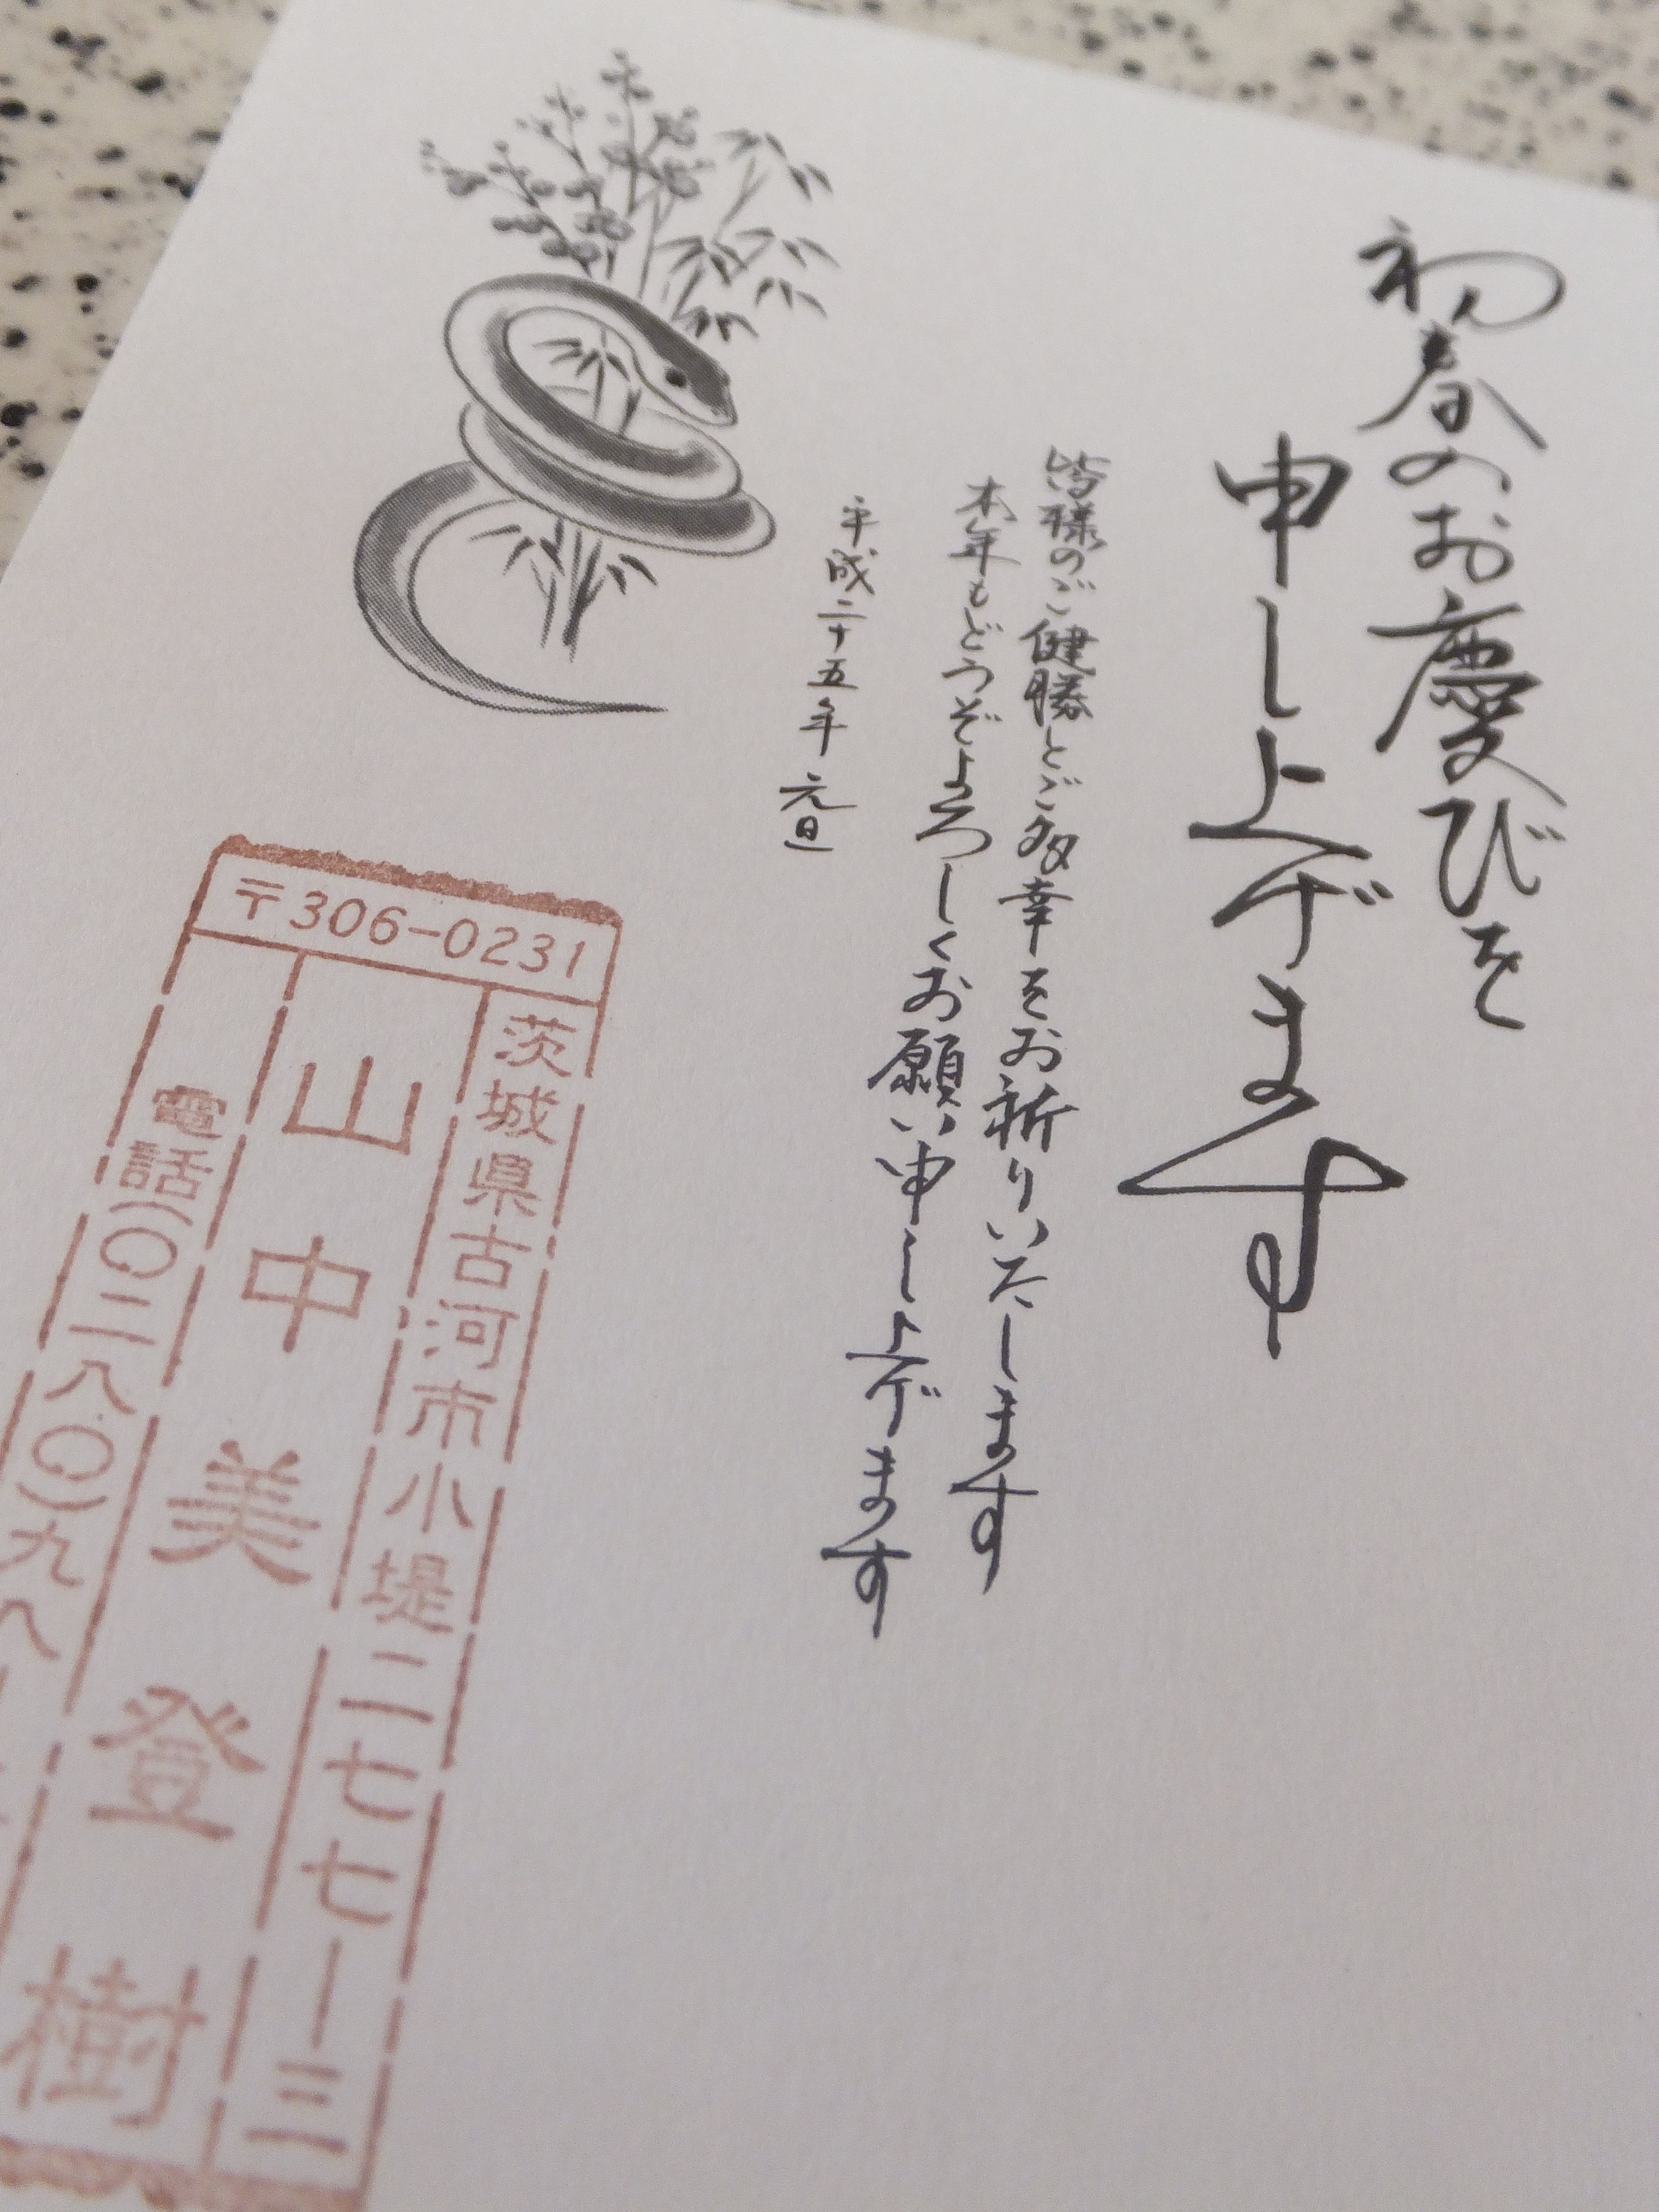 初春のお慶びを
申し上げます
皆様のご健勝とご多幸をお祈りいたします
本年もどうぞよろしくお願い申し上げます
平成二十五年 元旦
〒306-0231
茨城県古河市小堤二七七ー三
山中美登樹
電話(〇二八〇)九八